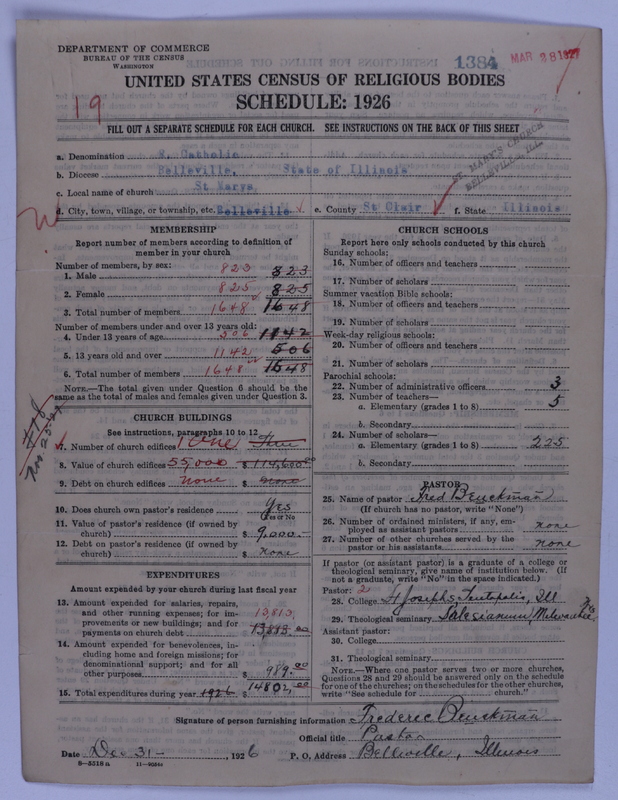 DEPARTMENT OF COMMERCE
BUREAU OF THE CENSUS
WASHINGTON
1384
MAR 28 1927
UNITED STATES CENSUS OF RELIGIOUS BODIES
SCHEDULE: 1926
19
FILL OUT A SEPARATE SCHEDULE FOR EACH CHURCH. SEE INSTRUCTIONS ON THE BACK OF THIS SHEET
ST. MARY'S CHURCH
BELLEVILLE, ILL.
a. Denomination R. Catholic
b. Diocese Belleville, State of Illinois
c. Local name of church St Marys,
d. City, town, village, or township, etc. Belleville e. County St Clair f. State Illinois
MEMBERSHIP
Report number of members according to definition of
member in your church
Number of members, by sex:
1. Male 823 823
2. Female 825 825
3. Total number of members 1648 1648
Number of members under and over 13 years old:
4. Under 13 years of age 506 1142
5. 13 years old and over 1142 506
6. Total number of members 1648 1648
NOTE.—The total given under Question 6 should be the
same as the total of males and females given under Question 3.
CHURCH BUILDINGS
See instructions, paragraphs 10 to 12
7. Number of church edifices 1 One
8. Value of church edifices 55,000 $ 114,600.00
9. Debt on church edifices none $ none
10. Does church own pastor's residence Yes
(Yes or No)
11. Value of pastor's residence (if owned by
church) $ 9,000.
12. Debt on pastor's residence (if owned by
church) $ none
EXPENDITURES
Amount expended by your church during last fiscal year
13. Amount expended for salaries, repairs,
and other running expenses; for im-
provements or new buildings; and for
payments on church debt 13813 $ 13813.00
14. Amount expended for benevolences, in-
cluding home and foreign missions; for
denominational support; and for all
other purposes $ 989.00
15. Total expenditures during year 1926 $ 14802.00
CHURCH SCHOOLS
Report here only schools conducted by this church
Sunday schools:
16. Number of officers and teachers
17. Number of scholars
Summer vacation Bible schools:
18. Number of officers and teachers
19. Number of scholars
Week-day religious schools:
20. Number of officers and teachers
21. Number of scholars
Parochial schools:
22. Number of administrative officers 3
23. Number of teachers—
a. Elementary (grades 1 to 8) 5
b. Secondary
24. Number of scholars—
a. Elementary (grades 1 to 8) 225
b. Secondary
PASTOR
25. Name of pastor Fred Beuckman
(If church has no pastor, write "None")
26. Number of ordained ministers, if any, em-
ployed as assistant pastors none
27. Number of other churches served by the
pastor or his assistants none
If pastor (or assistant pastor) is a graduate of a college or
theological seminary, give name of institution below. (If
not a graduate, write "No" in the space indicated.)
Pastor: 2
28. College St Josephs, Teutopolis, Ill
29. Theological seminary Salesianum, Milwaukee
Assistant pastor:
30. College
31. Theological seminary
NOTE.—Where one pastor serves two or more churches,
Questions 28 and 29 should be answered only on the schedule
for one of the churches; on the schedules for the other churches,
write "See schedule for church."
Signature of person furnishing information Frederic Beuckman
Official title Pastor
Date Dec 31 - , 1926 P. O. Address Belleville, Illinois
8—5518a 11—9054